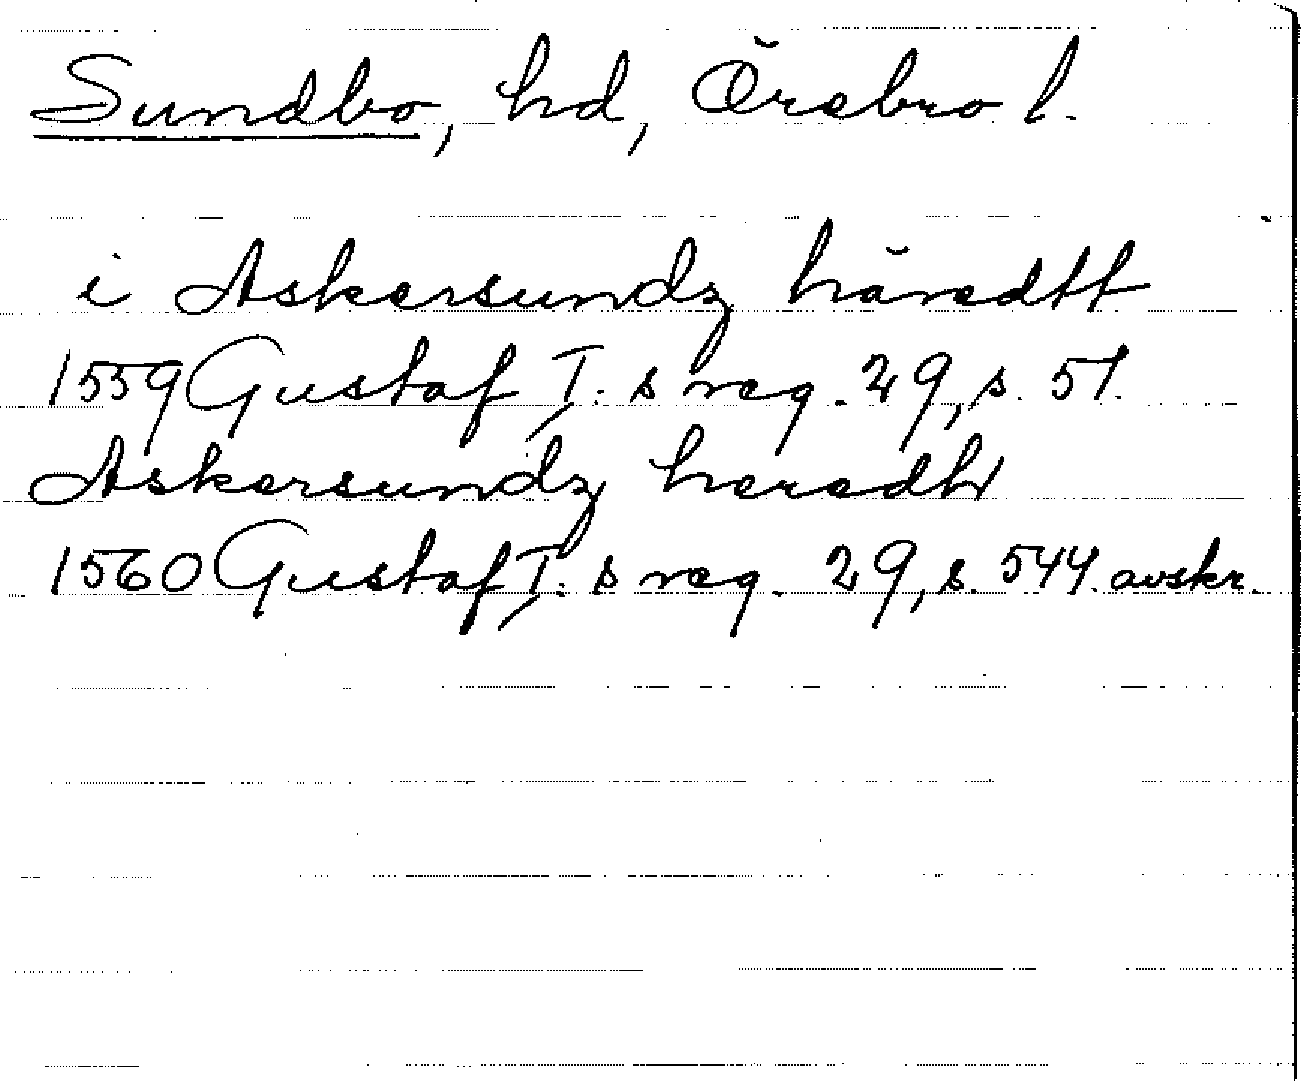 Sundbo, hd, Örebro l.
i Askersundz häredtt
1559 Gustaf I:s reg. 29, s. 51.
Askersundz heredh
1560 Gustaf I:s reg. 29, s. 544. avskr.